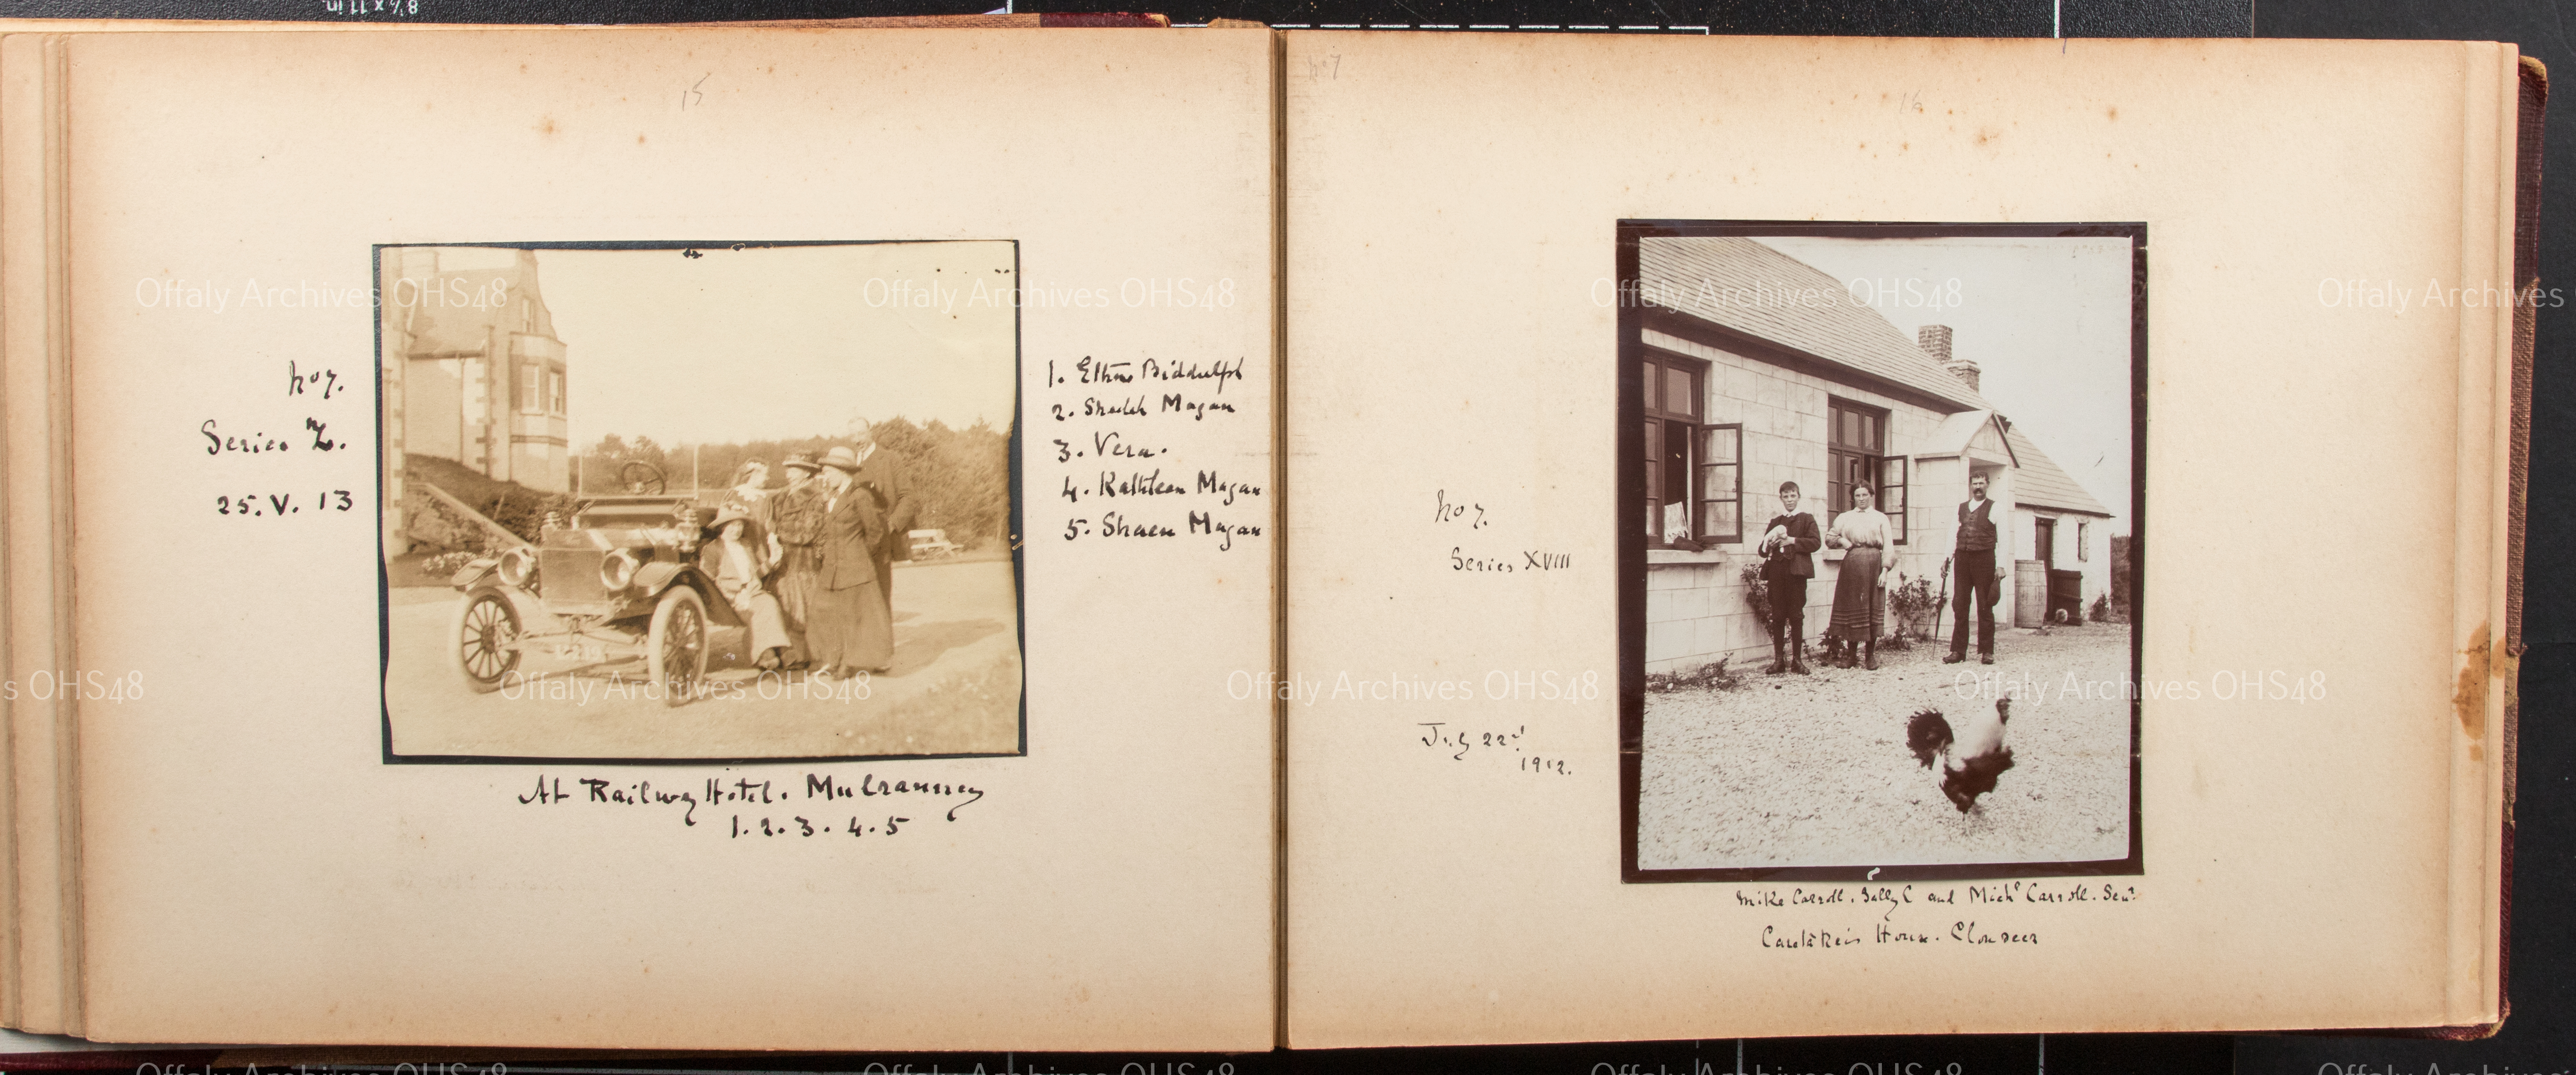 8½ x 11 in
15
No 7.
Series Z.
25. V. 13
1. Ethne Biddulph
2. Sheelah Magan
3. Vera.
4. Kathleen Magan
5. Shaen Magan
At Railway Hotel. Mulranney
1. 2. 3. 4. 5
No 7
16
No 7.
Series XVIII
July 22d
1912.
Mike Carroll. Sally C and Michl Carroll. Senr
Caretakers House. Clonseer
Offaly Archives OHS48